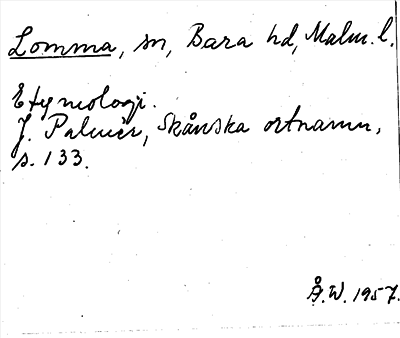 Lomma, sn, Bara hd, Malm. l.
Etymologi.
J. Palmér, Skånska ortnamn,
s. 133.
Å.W. 1957.